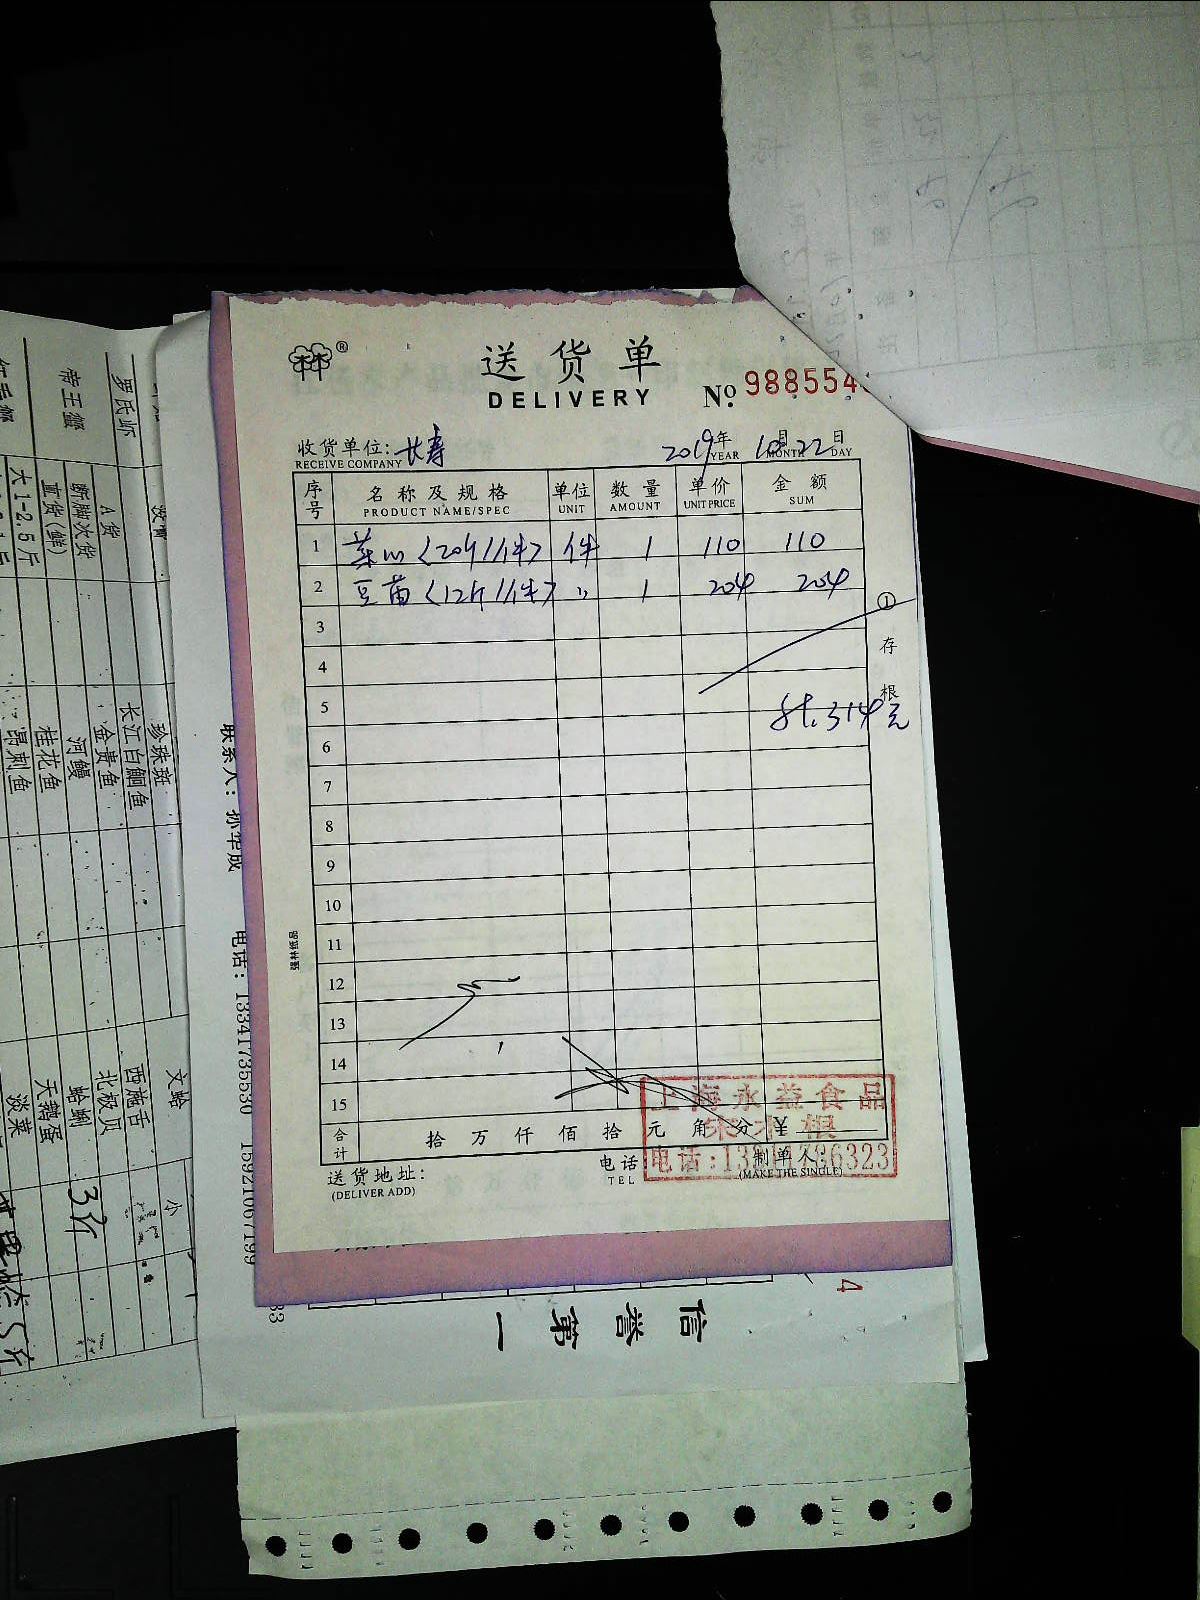 送货单
DELIVERY
No. 988554
收货单位: 长寿
RECEIVE COMPANY
2019年 10月 22日
YEAR MONTH DAY
序号 名称及规格 单位 数量 单价 金额
PRODUCT NAME/SPEC UNIT AMOUNT UNIT PRICE SUM
1 菜心(20斤/件) 件 1 110 110
2 豆苗(12斤/件) 〃 1 204 204
3
4
5
计.314元
6
7
8
9
10
11
12
13
14
15
①存根
强林纸品
合计 拾 万 仟 佰 拾 元 角 分 ¥
送货地址:
(DELIVER ADD)
电话
TEL
制单人:
(MAKE THE SINGLE)
上海永益食品
电话:13
6323
联系人:
电话: 13341735530 15921067199
信誉第一
4
罗氏虾
帝王蟹
A货
断脚次货
直货(鲜)
大1-2.5斤
珍珠斑
长江白鮰鱼
金贵鱼
河鳗
桂花鱼
昂刺鱼
文蛤
西施舌
北极贝
蛤蜊
天鹅蛋
淡菜
小
3斤